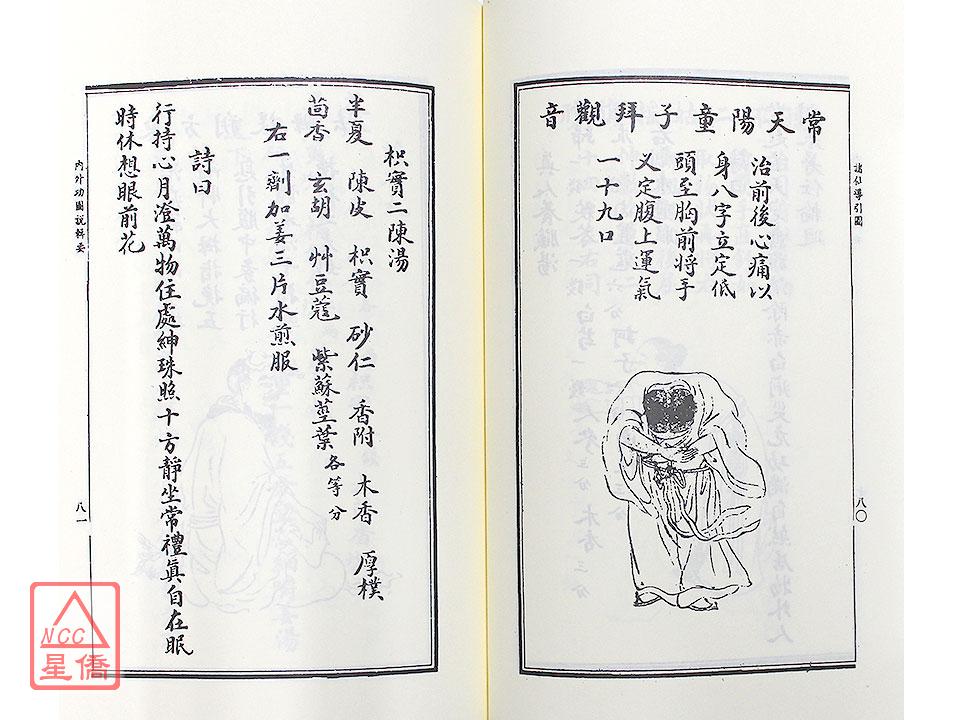 諸仙導引圖
八〇
常天陽童子拜觀音
治前後心痛以
身八字立定低
頭至胸前將手
义定腹上運氣
一十九口
枳實二陳湯
半夏 陳皮 枳實 砂仁 香附 木香 厚樸
茴香 玄胡 艸豆蔻 紫蘇莖葉各等分
右一劑加姜三片水煎服
詩曰
行持心月澄萬物住處紳珠照十方靜坐常禮眞自在眠
時休想眼前花
內外功圖說輯要
八一
NCC
星僑